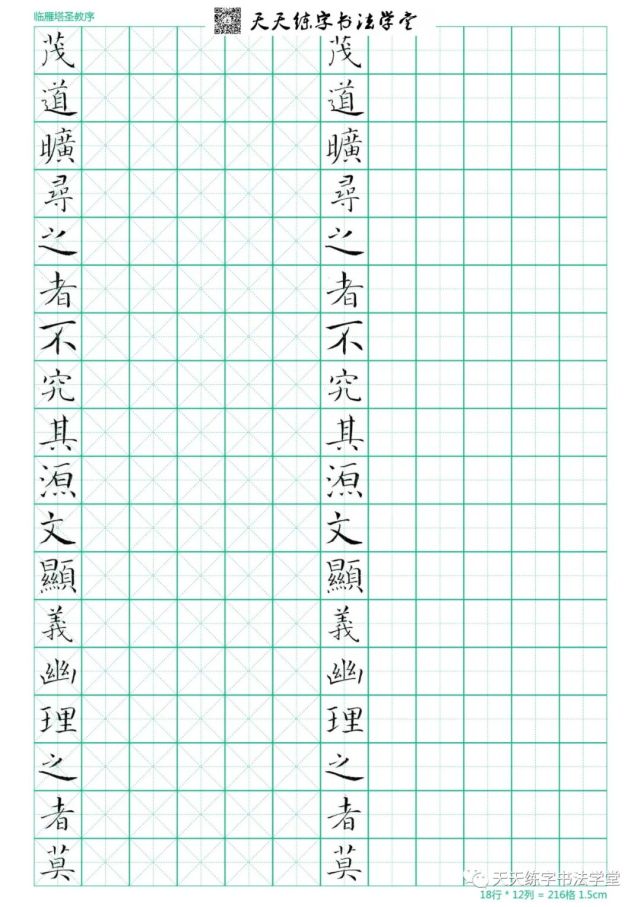 临雁塔圣教序
天天练字书法学堂
茂道曠尋之者不究其源文顯義幽理之者莫
茂道曠尋之者不究其源文顯義幽理之者莫
天天练字书法学堂
18行 * 12列 = 216格 1.5cm